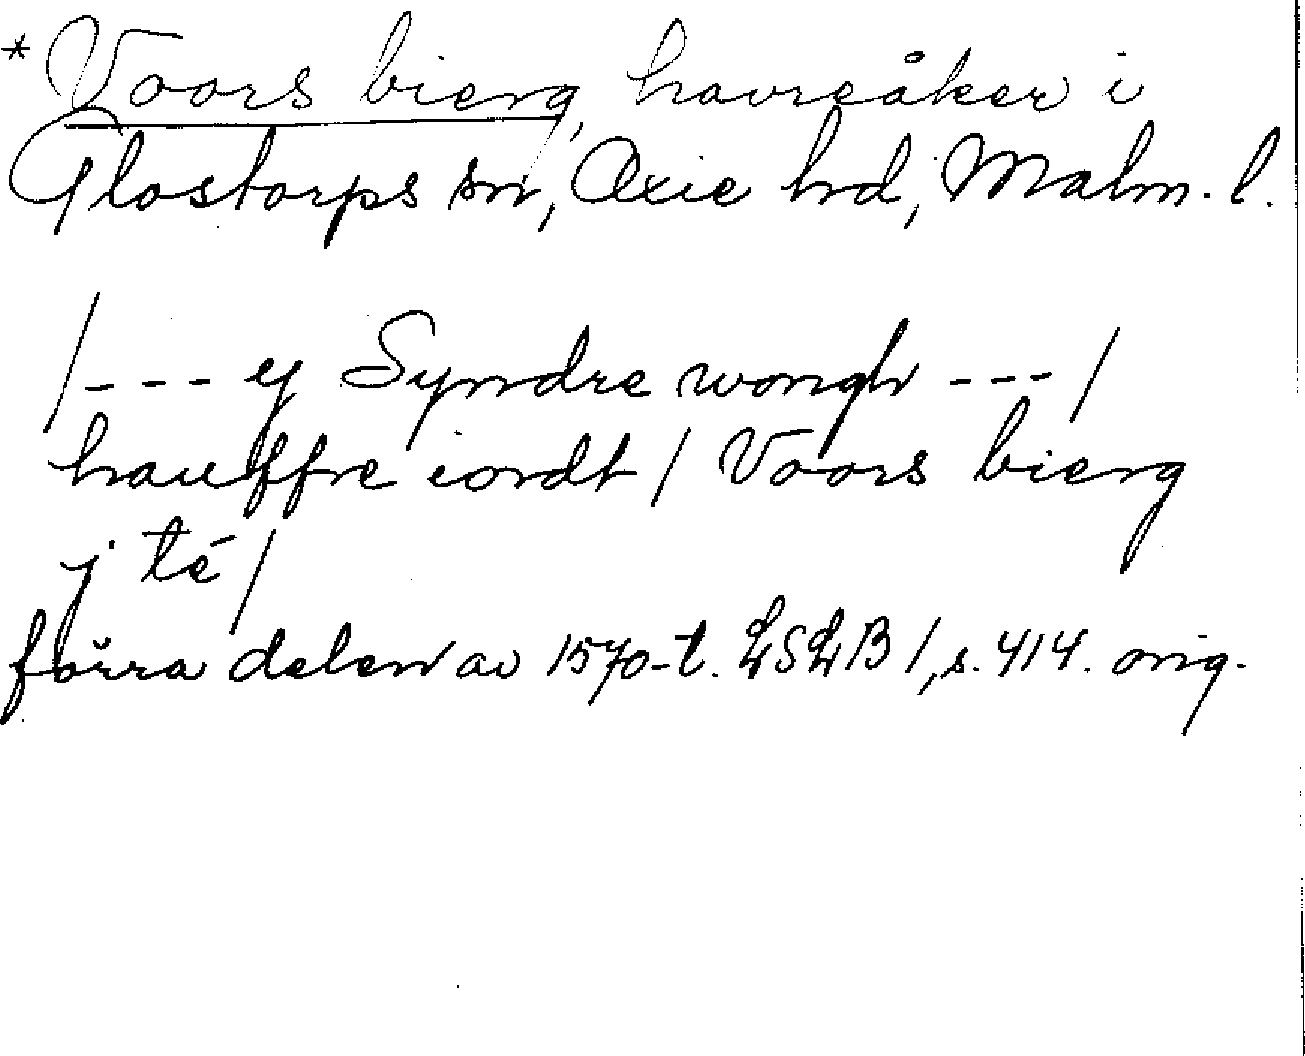 *Voors bierg, havreåker i
Glostorps sn, Oxie hd, Malm. l.
/--- ey Syndre wongh ---/
hauffre iordt / Voors bierg
j té /
förra delen av 1570-t. LSLB 1, s. 414. orig.